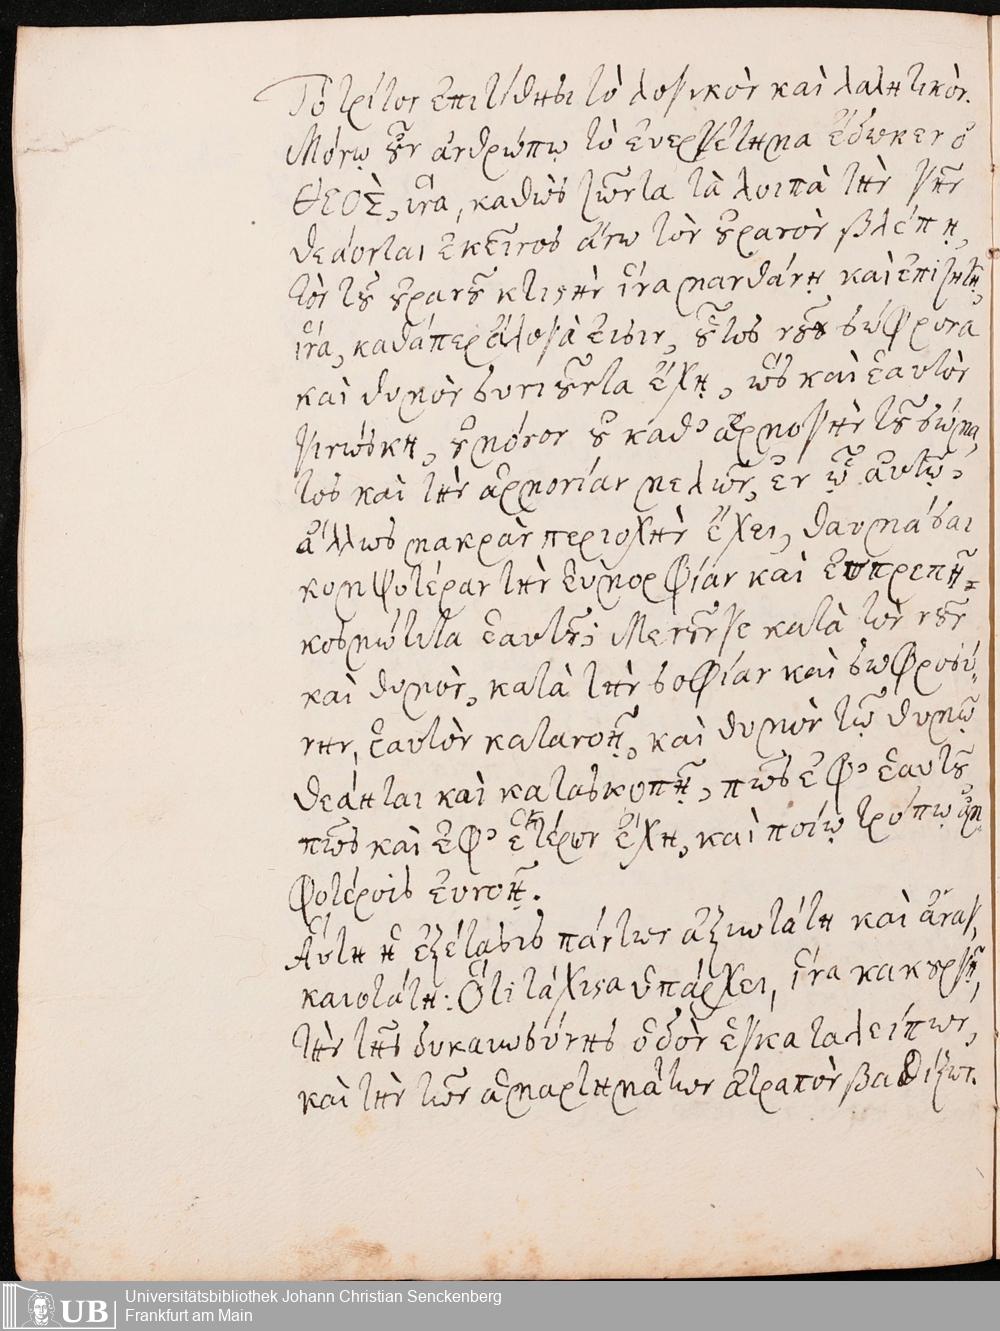 Τὸ τρίτον ἐπιτίθησι τὸ λογικὸν καὶ λαλητικόν.
Μόνῳ ȣ̃ν ἀνθρώπῳ τὸ ἐνεργέτημα ἔδωκεν ὁ
ΘΕΟΣ̀, ἵνα, καθὼς ζῶντα τὰ λοιπὰ τὴν γῆν
θεάονται ἐκεῖνος ἄνω τὸν ȣ̓ρανὸν βλέπῃ,
τὸν τȣ̃ ȣ̓ρανȣ̃ κτιςὴν ἵνα μανθάνῃ καὶ ἐπιζητῇ,
ἵνα, καθάπερ ἄλογά εἰσιν, ȣ̃τος νȣ̃ν σώφρονα
καὶ θυμὸν συνιȣ̃ντα ἔχῃ, ὡς καὶ ἑαυτὸν
γινώσκῃ, ȣ̓ μόνον ȣ̓ καθ᾽ ἁρμογὴν τȣ̃ σώμα,
τος καὶ τὴν ἁρμονίαν μελῶν, ἐν ᾧ ἀυτῷ,
ἄλλως μακρὰν περιοχὴν ἔχει, θαυμάσαι
κομψοτέραν τὴν ἐυμορφίαν καὶ ἐυπρεπῆ=
κοσμιώτιτα ἑαυτȣ̃; Μενȣ̃νγε κατὰ τὸν νȣ̃ν
καὶ θυμὸν, κατὰ τὴν σοφίαν καὶ σωφροσύ,,
νην, ἑαυτὸν κατανοῇ, καὶ θυμὸν τῷ θυμῷ
θεάηται καὶ κατασκοπῇ, πῶς ἐφ᾽ ἑαυτȣ̃
πῶς καὶ ἐφ᾽ ἑτέρων ἔχῃ, καὶ ποίῳ τρόπῳ ἀμ
φοτέροις ἐυνοῇ.
Ἀύτη ἡ ἐξέτασις πάντων ἀξιωτάτη καὶ ἀναγ,
καιοτάτη: Ὅτι τάχιςα ὑπάρχει, ἵνα κακȣργῇ,
τὴν τῆς δυκαιωσύνης ὁδὸν ἐγκαταλείπων,
καὶ τὴν τῶν ἁμαρτημάτων ἀτραπὸν βαδίζων.
Universitätsbibliothek Johann Christian Senckenberg
Frankfurt am Main
UB